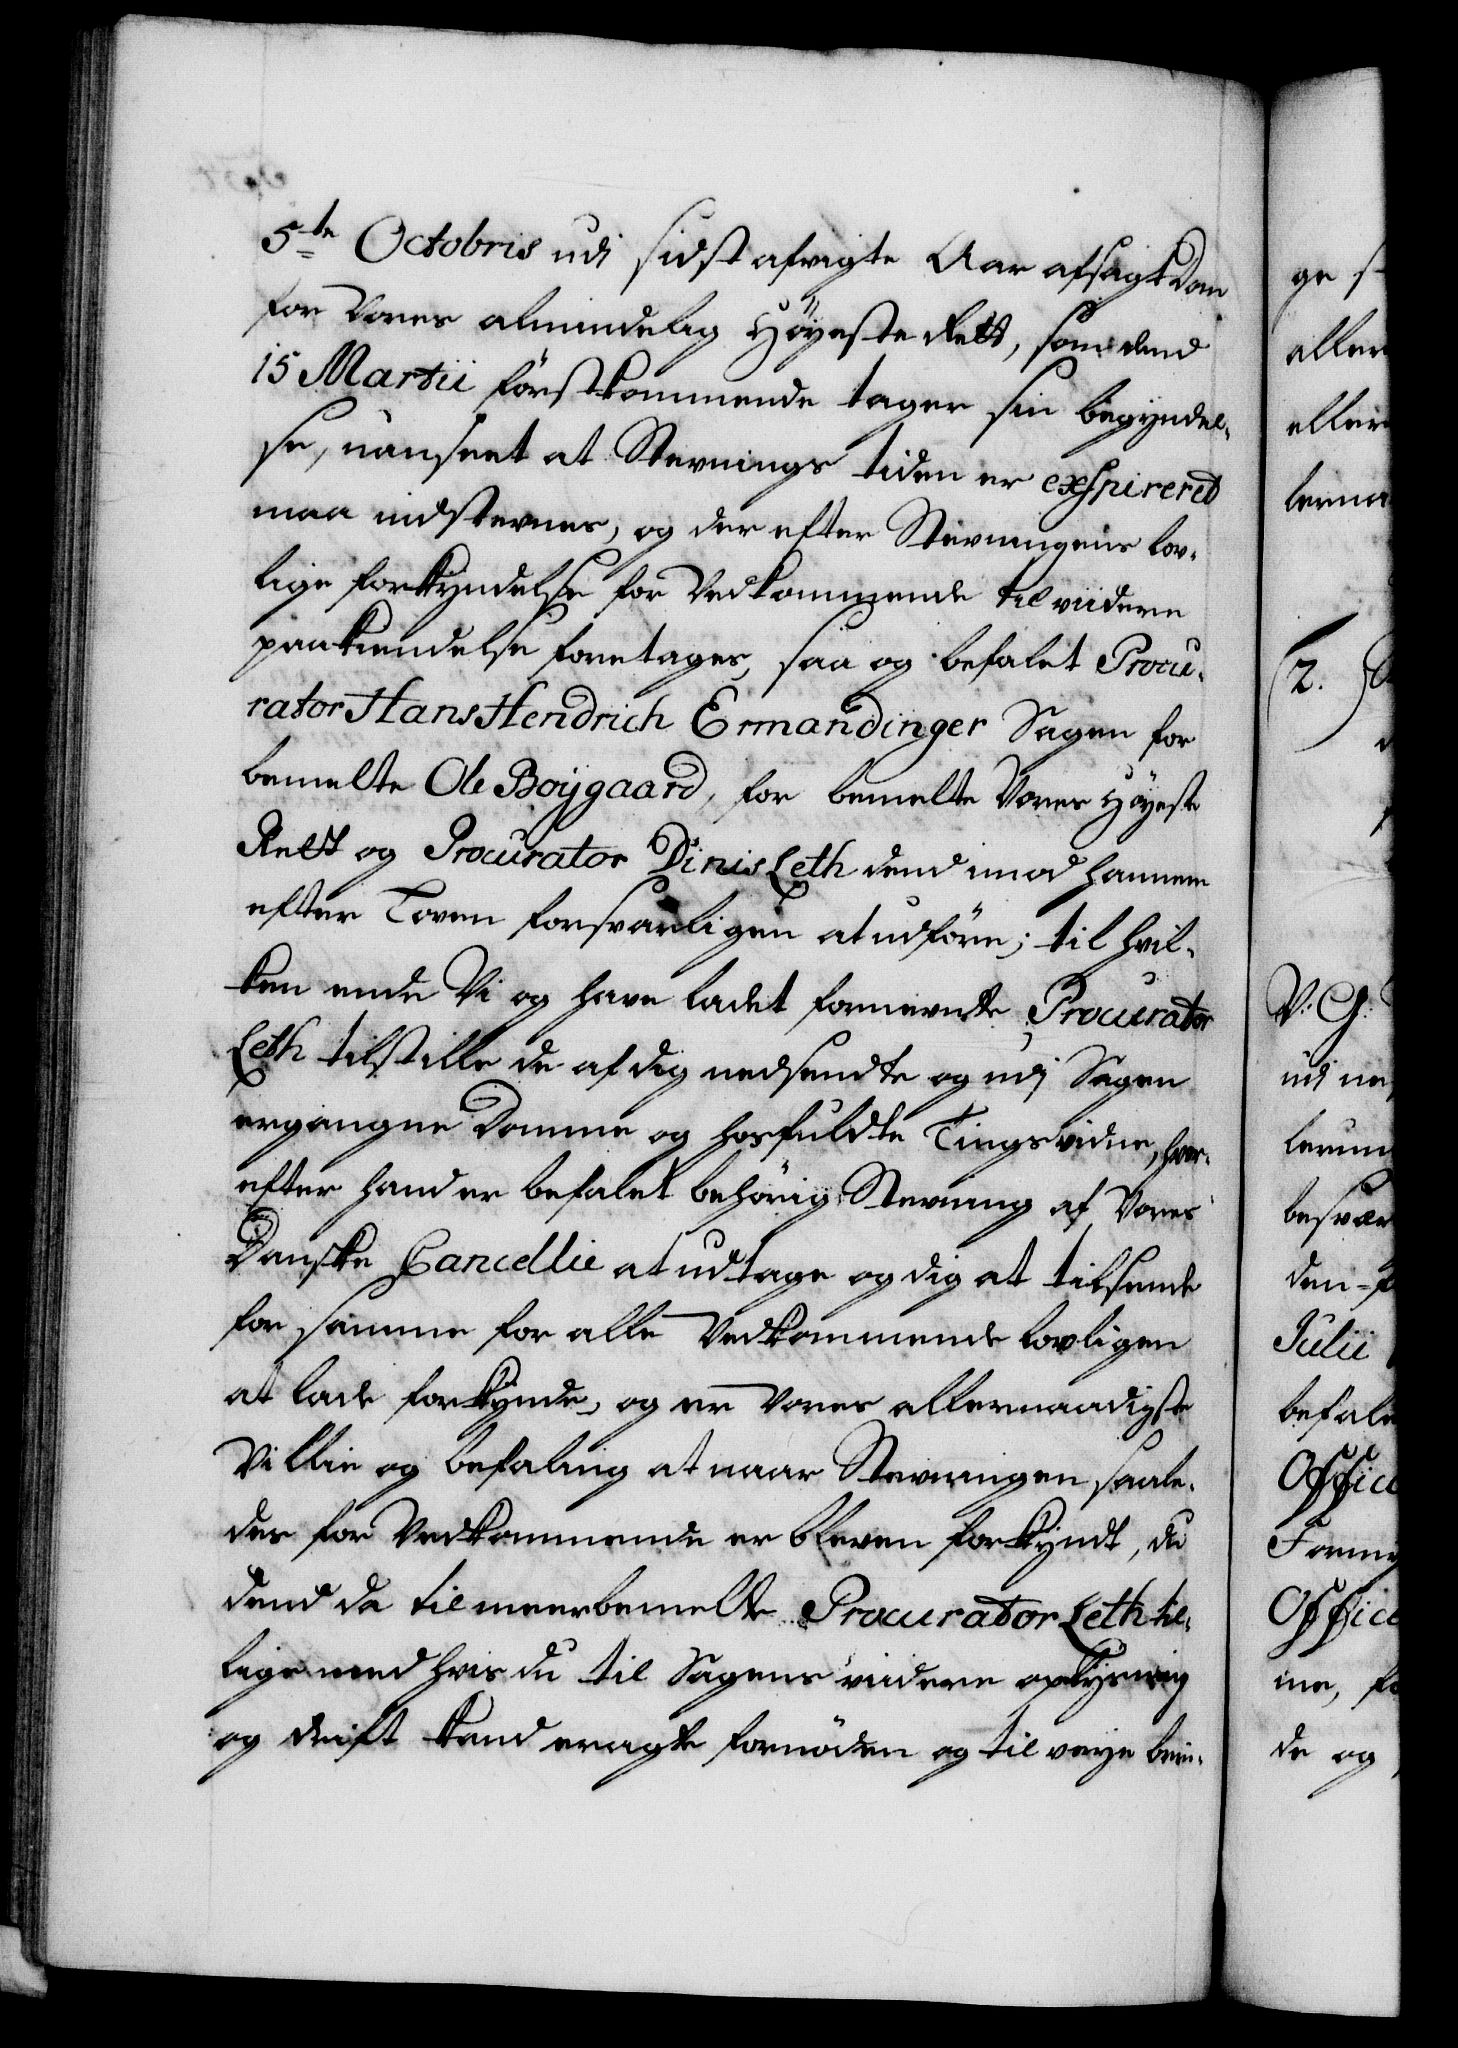 5te Octobris udj sidst afvigte Aar afsagt Dom
for Vores almindelig Höyeste Rett, som dend
15 Martii förstkommende tager sin begyndel-
se, uanseet at Stevnings tiden er expireret
maa indstevnes, og der efter Stevningens lov-
lige forkyndelse for Vedkommende til viidere
paakiendelse foretages, saa og befalet Procu-
rator Hans Hendrich Ermandinger Sagen for
bemelte Ole Boygaard, for bemelte Vores Höyeste
Rett og Procurator Dinis Leth dend imod hannem
efter Loven forsvarligen at udföre; til hvil-
ken ende Vi og have ladet fornevnte Procurator
Leth tilstille de af dig nedsendte og udj Sagen
ergangne Domme og hosfuldte Tingsvidne, hvor-
efter hand er befalet behörig Stevning af Vores
Danske Cancellie at udtage og dig at tilsende
for samme for alle Vedkommende lovligen
at lade forkynde, og er Vores allernaadigste
Villie og befaling at naar Stevningen saale-
des for Vedkommende er bleven forkyndt, du
dend da til meerbemelte Procurator Leth til-
lige med hvis du til Sagens viidere oplysning
og drift kand eragte fornöden og til veye brin-
ge
aller
eller
lerna
(2.
V: G:
udi
lerun
besvær
den
Julii
befale
Office
Office
me,
de og